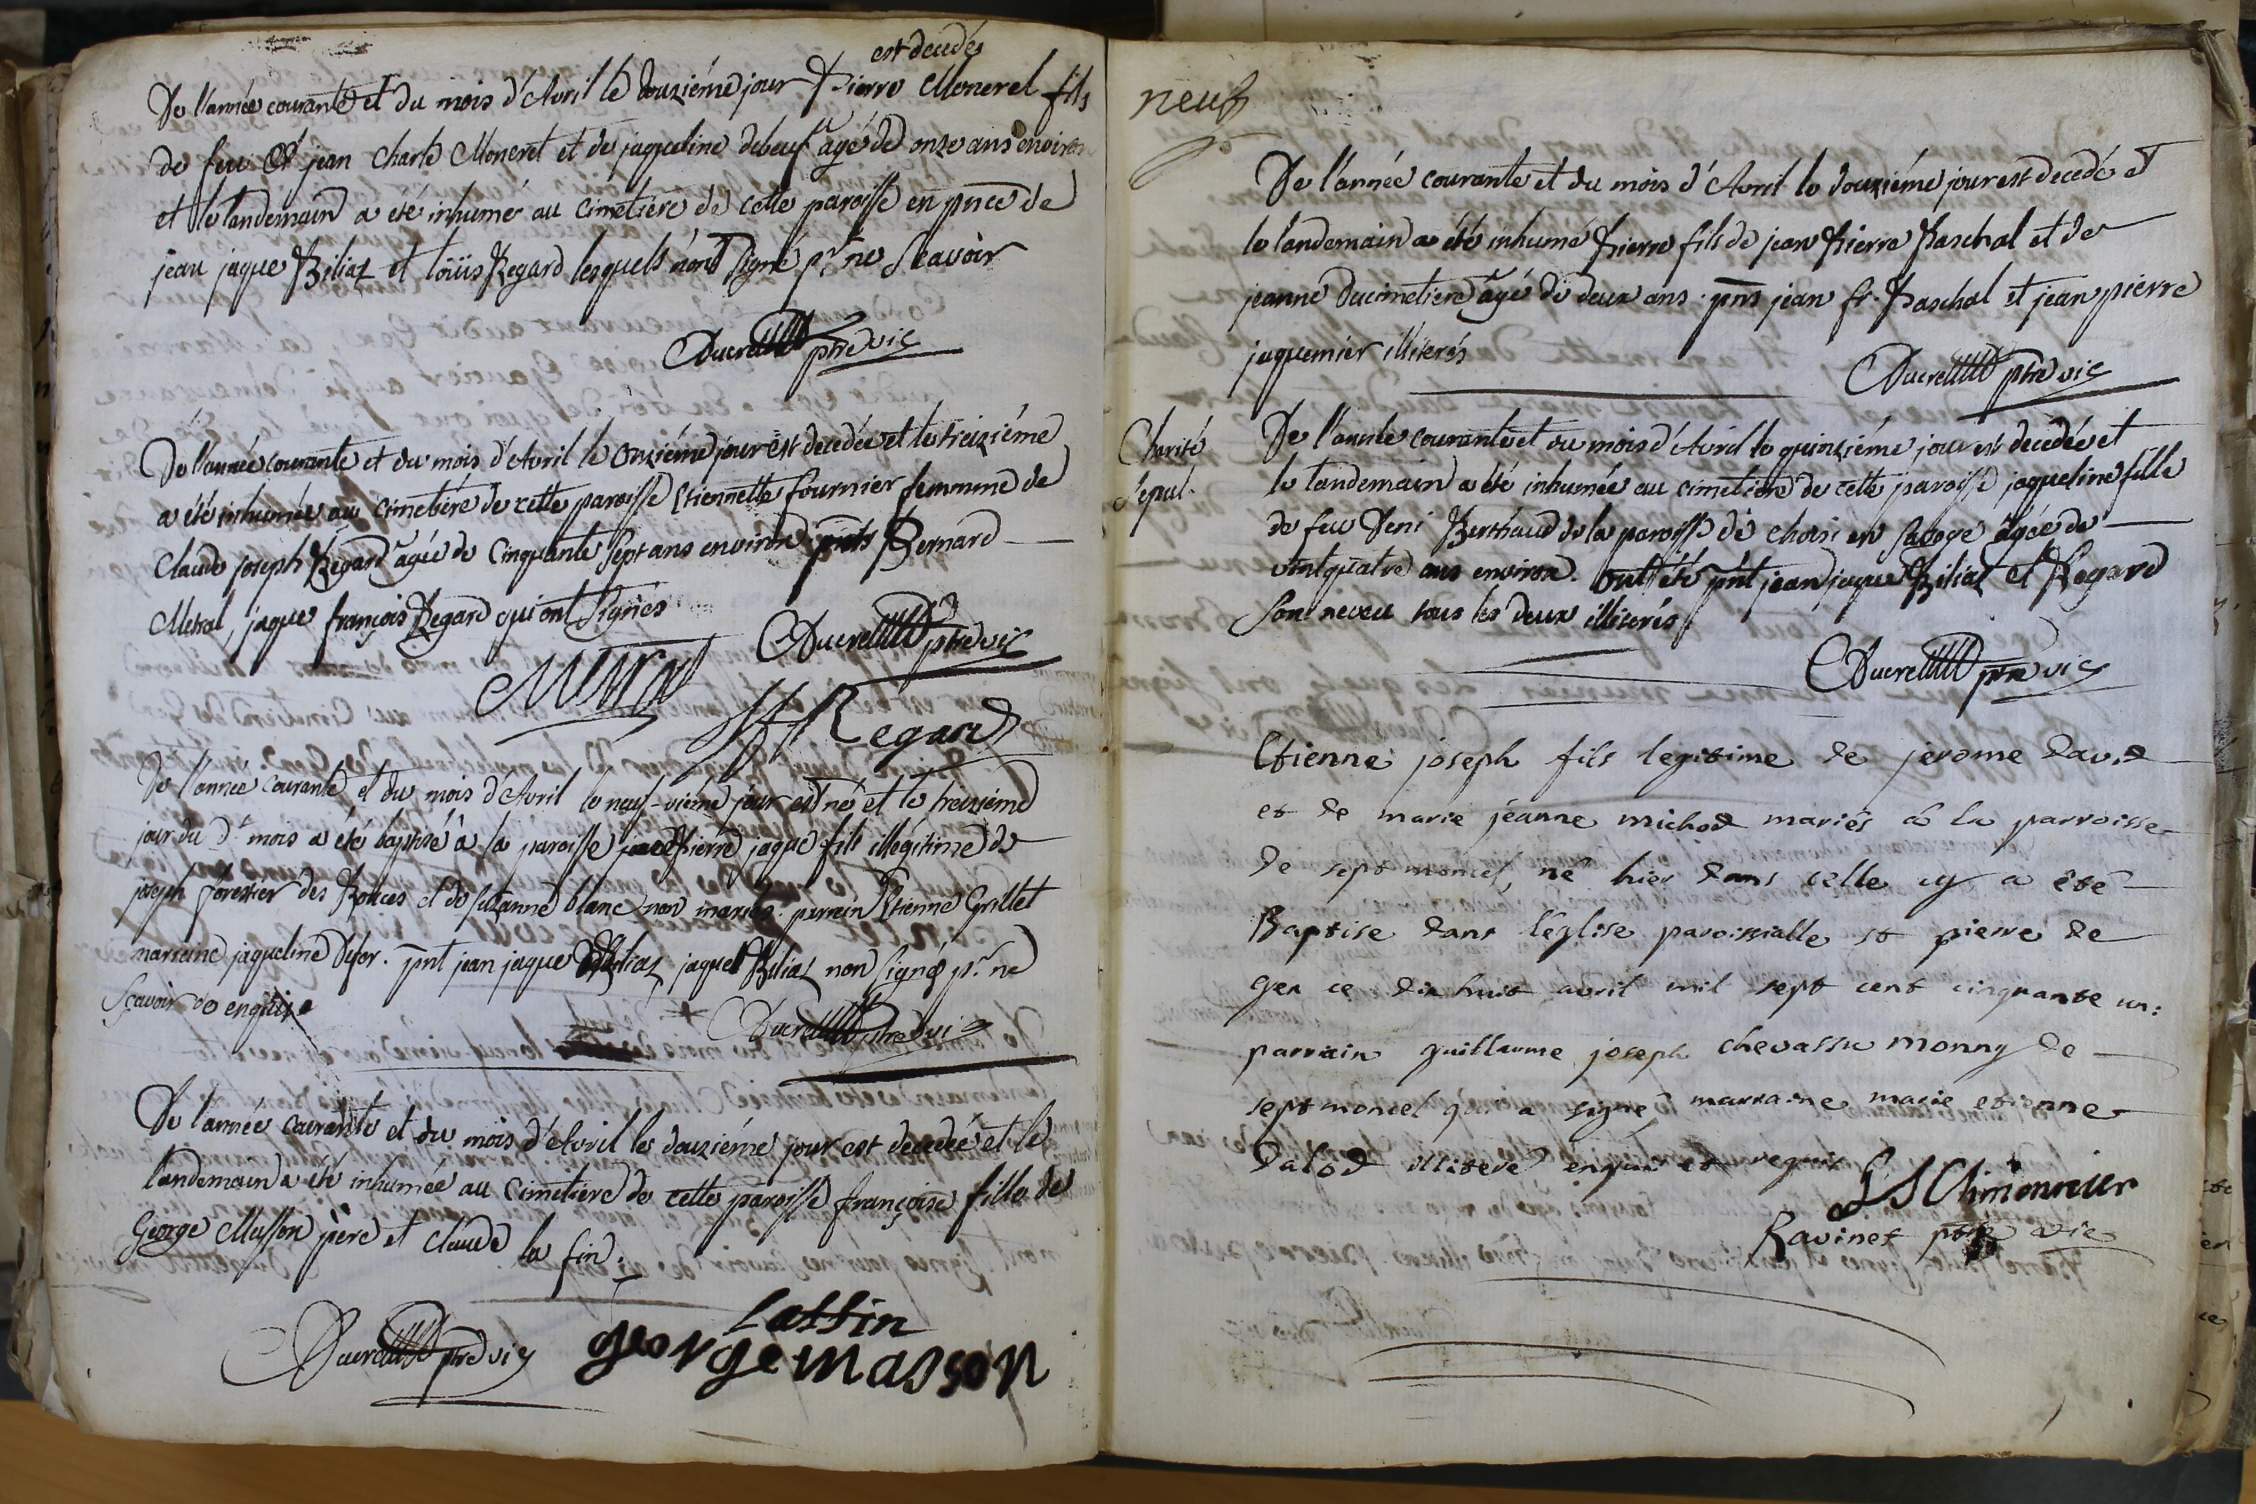 est decedé
De l'année courante et du mois d'Avril le douziéme jour Pierre Moneret fils
de feu Sr jean Charle Moneret et de jaqueline debeuf âgé de onze ans environ
et le landemain a été inhumé au cimetière de cette paroisse en pnce de
jean jaque Biliaz et loüis Regard lesquels n'ont signé pr ne sçavoir
Ducret ptre vic
De l'année courante et du mois d'Avril le onziéme jour est decedée et le treiziéme
a été inhumée au cimetière de cette paroisse Etiennette fournier femme de
Claude joseph Regard agée de cinquante sept ans environ pnts Bernard
Metral, jaque françois Regard qui ont signés
Metral
Ducret ptre vic
JfRegard
De l'année courante et du mois d'Avril le neuf-vieme jour est né et le treiziéme
jour du d. mois a été baptisé à la paroisse Pierre jaque fils illégitime de
joseph forestier des Rouces et de suzanne blanc non mariés. parrein Etienne Grillet
marreine jaqueline Defor. pnt jean jaque Biliaz jaque Biliaz non signé pr ne
sçavoir de enquis
Ducret ptre vic
De l'année courante et du mois d'Avril le douziéme jour est decedée et le
landemain a été inhumée au cimetiere de cette paroisse françoise fille de
George Masson père et claude la fin
laffin
Ducret ptre vic
george masson
neuf
De l'année courante et du mois d'Avril le douziéme jour est decedé et
le landemain a été inhumé Pierre fils de jean Pierre Paschal et de
jeanne ducimetiere âgé de deux ans. pnts jean fr. Paschal et jean pierre
jaquemier illiterés
Ducret ptre vic
Charité
Sepul.
De l'année courante et du mois d'Avril le quinziéme jour est decedée et
le landemain a été inhumée au cimetiere de cette paroisse jaqueline fille
de feu Deni Berthaud de la paroisse de choisi en Savoye âgée de
vint quatre ans environ. ont été pnt jean jaque Biliaz et Regard
son neveu tous les deux illiterés
Ducret ptre vic
Etienne joseph fils legitime de jerome david
et de marie jeanne michod mariés à la parroisse
de sept moncel, né hier dans celle cy a été
Baptise dans l'église paroissialle st pierre de
gex ce dix huit avril mil sept cent cinquante un:
parrain guillaume joseph chevassu monny de
septmoncel qui a signé marraine marie etienne
dalod illiteré enquis et requis
Ravinet ptre vic